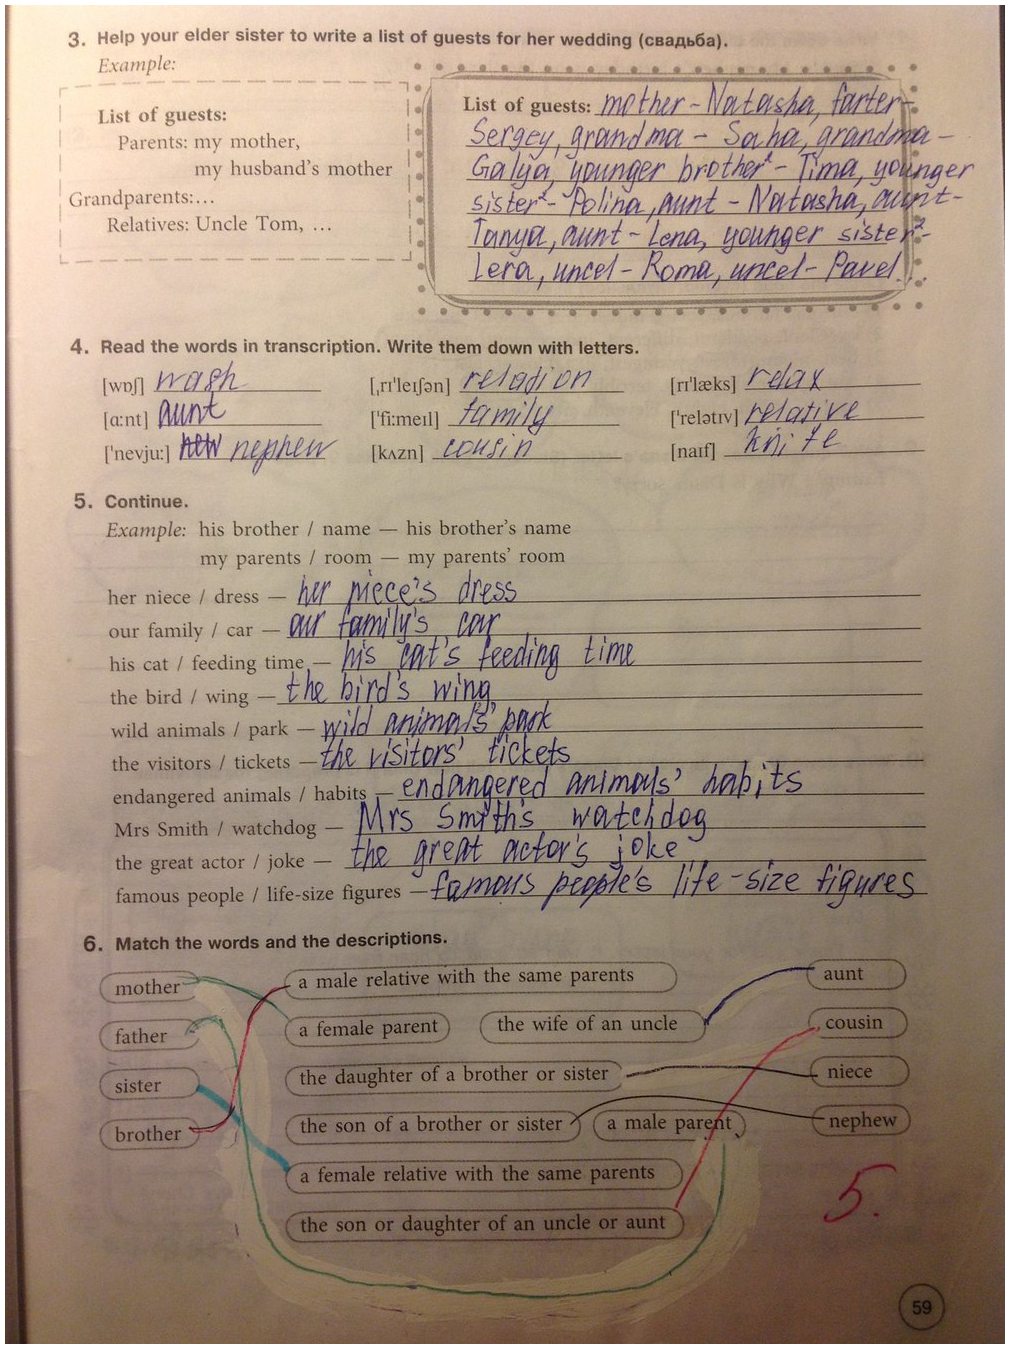 3. Help your elder sister to write a list of guests for her wedding (свадьба).
Example:
List of guests:
Parents: my mother,
my husband's mother
Grandparents:...
Relatives: Uncle Tom, ...
List of guests: mother - Natasha, farter -
Sergey, grandma - Saha, grandma -
Galya, younger brother² - Tima, younger
sister² - Polina, aunt - Natasha, aunt -
Tanya, aunt - Lena, younger sister² -
Lera, uncel - Roma, uncel - Pavel...
4. Read the words in transcription. Write them down with letters.
[wɒʃ] wash [ˌrɪ'leɪʃən] relation [rɪ'læks] relax
[ɑ:nt] aunt ['fi:meɪl] family ['relətɪv] relative
['nevju:] new nephew [kʌzn] cousin [naɪf] knife
5. Continue.
Example: his brother / name — his brother's name
my parents / room — my parents' room
her niece / dress — her piece's dress
our family / car — our family's car
his cat / feeding time — his cat's feeding time
the bird / wing — the bird's wing
wild animals / park — wild animals' park
the visitors / tickets — the visitors' tickets
endangered animals / habits — endangered animals' habits
Mrs Smith / watchdog — Mrs Smith's watchdog
the great actor / joke — the great actor's joke
famous people / life-size figures — famous people's life-size figures
6. Match the words and the descriptions.
mother a male relative with the same parents aunt
father a female parent the wife of an uncle cousin
sister the daughter of a brother or sister niece
brother the son of a brother or sister a male parent nephew
a female relative with the same parents
the son or daughter of an uncle or aunt
5.
59